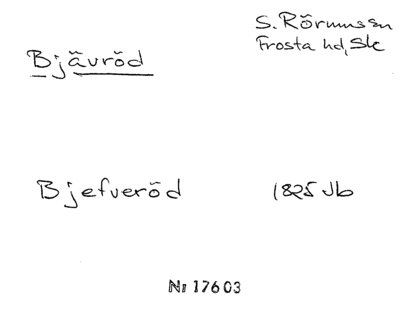 Bjävröd
S. Rörum sn
Frosta hd, Sk
Bjefveröd 1825 Jb
Nr 17603